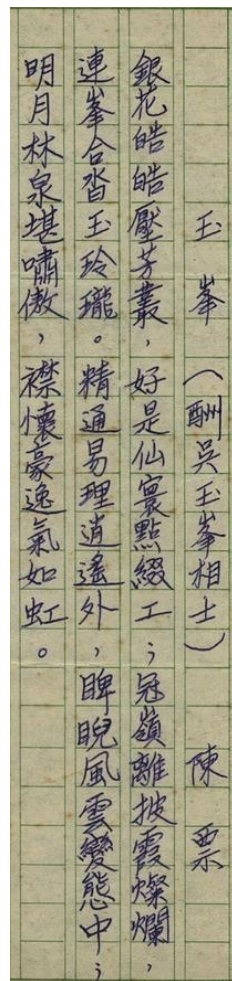 玉峯（酬吳玉峯相士）　陳票
銀花皓皓壓芳叢，好是仙寰點綴工；冠嶺離披霞燦爛，
連峯合沓玉玲瓏。精通易理逍遙外，睥睨風雲變態中；
明月林泉堪嘯傲，襟懷豪逸氣如虹。